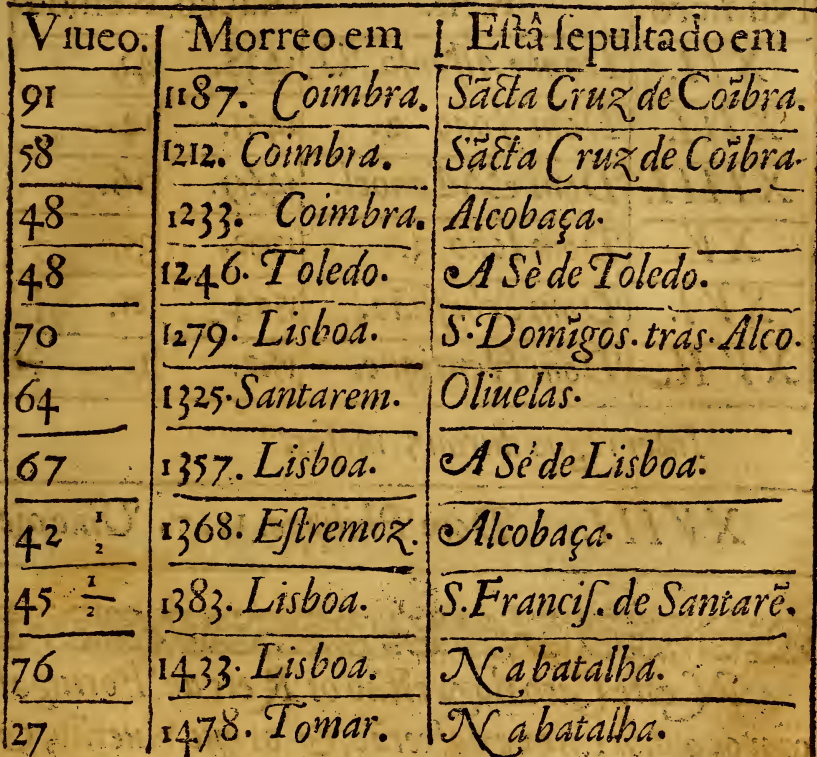 Viueo. Morreo em Eſtâ ſepultado em
91 1187. Coimbra. Sãcta Cruz de Coĩbra.
58 1212. Coimbra. Sãcta Cruz de Coĩbra.
48 1233. Coimbra. Alcobaça.
48 1246. Toledo. A Sè de Toledo.
70 1279. Lisboa. S. Domĩgos. tras. Alco.
64 1325. Santarem. Oliuelas.
67 1357. Lisboa. A Sé de Lisboa.
42 1/2 1368. Eſtremoz. Alcobaça.
45 1/2 1383. Lisboa. S. Franciſ. de Santarẽ.
76 1433. Lisboa. Na batalha.
27 1478. Tomar. Na batalha.